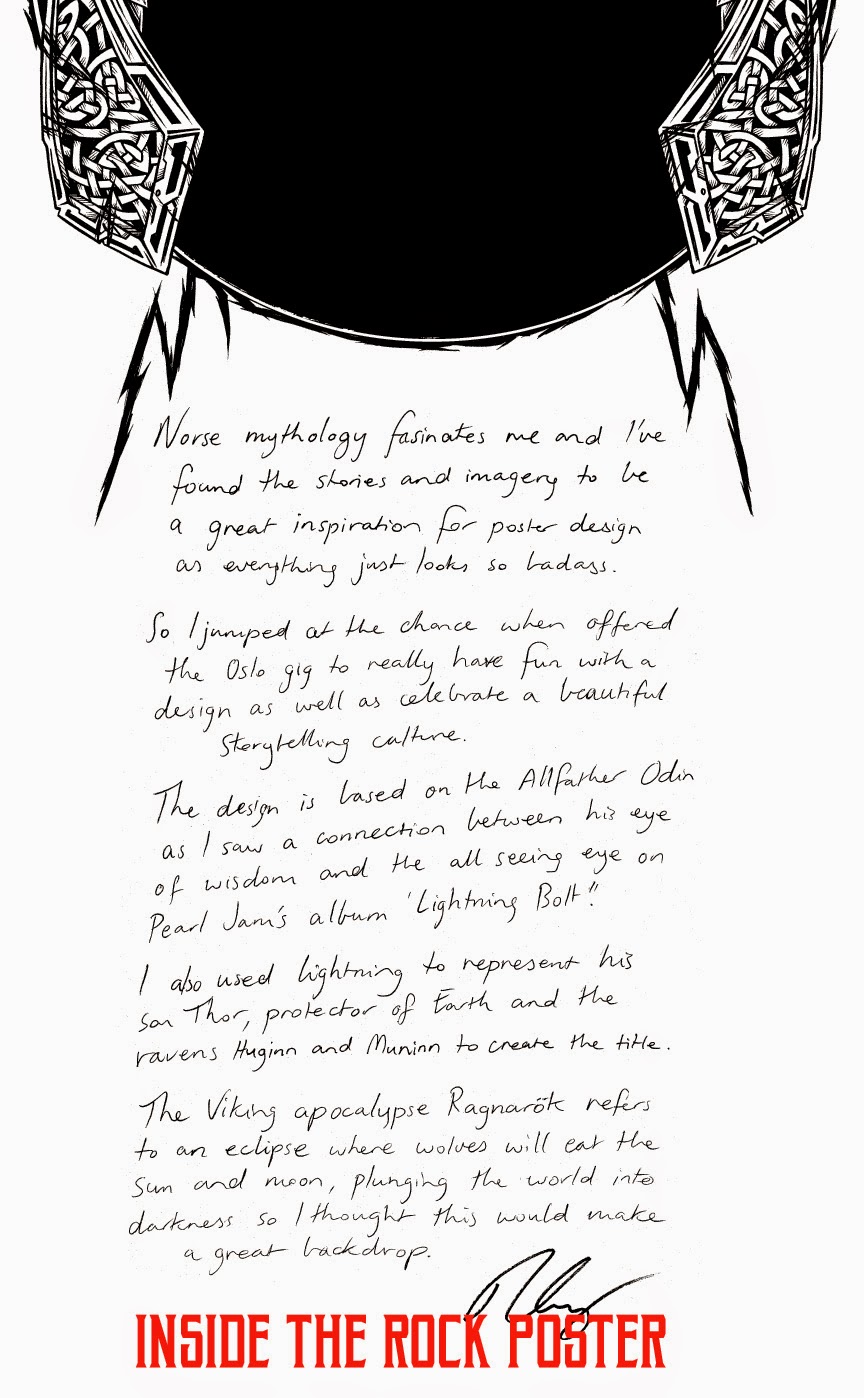 Norse mythology fasinates me and I've
found the stories and imagery to be
a great inspiration for poster design
as everything just looks so badass.
So I jumped at the chance when offered
the Oslo gig to really have fun with a
design as well as celebrate a beautiful
Storytelling culture.
The design is based on the Allfather Odin
as I saw a connection between his eye
of wisdom and the all seeing eye on
Pearl Jam's album 'Lightning Bolt'.
I also used lightning to represent his
son Thor, protector of Earth and the
ravens Huginn and Muninn to create the title.
The Viking apocalypse Ragnarök refers
to an eclipse where wolves will eat the
Sun and moon, plunging the world into
darkness so I thought this would make
a great backdrop.
INSIDE THE ROCK POSTER